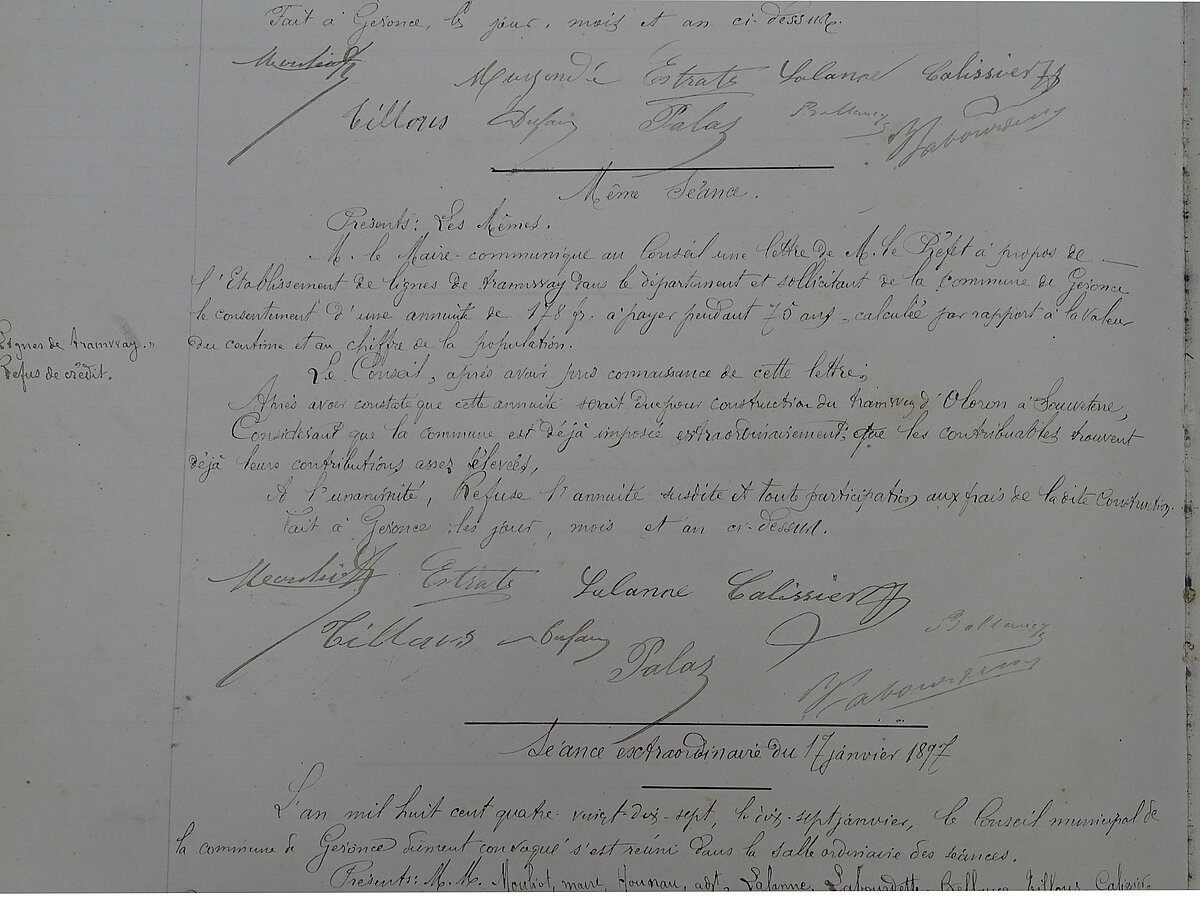 Fait à Geronce, les jour, mois et an ci-dessus.
Estrate Lalanne Calissier
Tillous Palas
Même Séance.
Présents: Les Mêmes.
M. le Maire communique au Conseil une lettre de M. le Préfet à propos de
l'Etablissement de lignes de tramway dans le département et sollicitant de la commune de Geronce
le consentement d'une annuité de 178 fr. à payer pendant 75 ans, calculée par rapport à la valeur
du centime et au chiffre de la population.
Lignes de tramway.
Refus de crédit.
Le Conseil, après avoir pris connaissance de cette lettre;
Après avoir constaté que cette annuité serait due pour construction du tramway d'Oloron à Sauveterre,
Considérant que la commune est déjà imposée extraordinairement, que les contribuables trouvent
déjà leurs contributions assez élevées,
A l'unanimité, Refuse l'annuité susdite et toute participation aux frais de la dite construction.
Fait à Geronce les jour, mois et an ci-dessus.
Estrate Lalanne Calissier
Tillous
Palas
Séance extraordinaire du 17 janvier 1897
L'an mil huit cent quatre-vingt-dix-sept, le dix-sept janvier, le Conseil municipal de
la commune de Geronce dûment convoqué s'est réuni dans la salle ordinaire des séances.
Présents: M. M. Mouliot, maire, adjt, Lalanne, Labourdette, Tillous, Calissier,